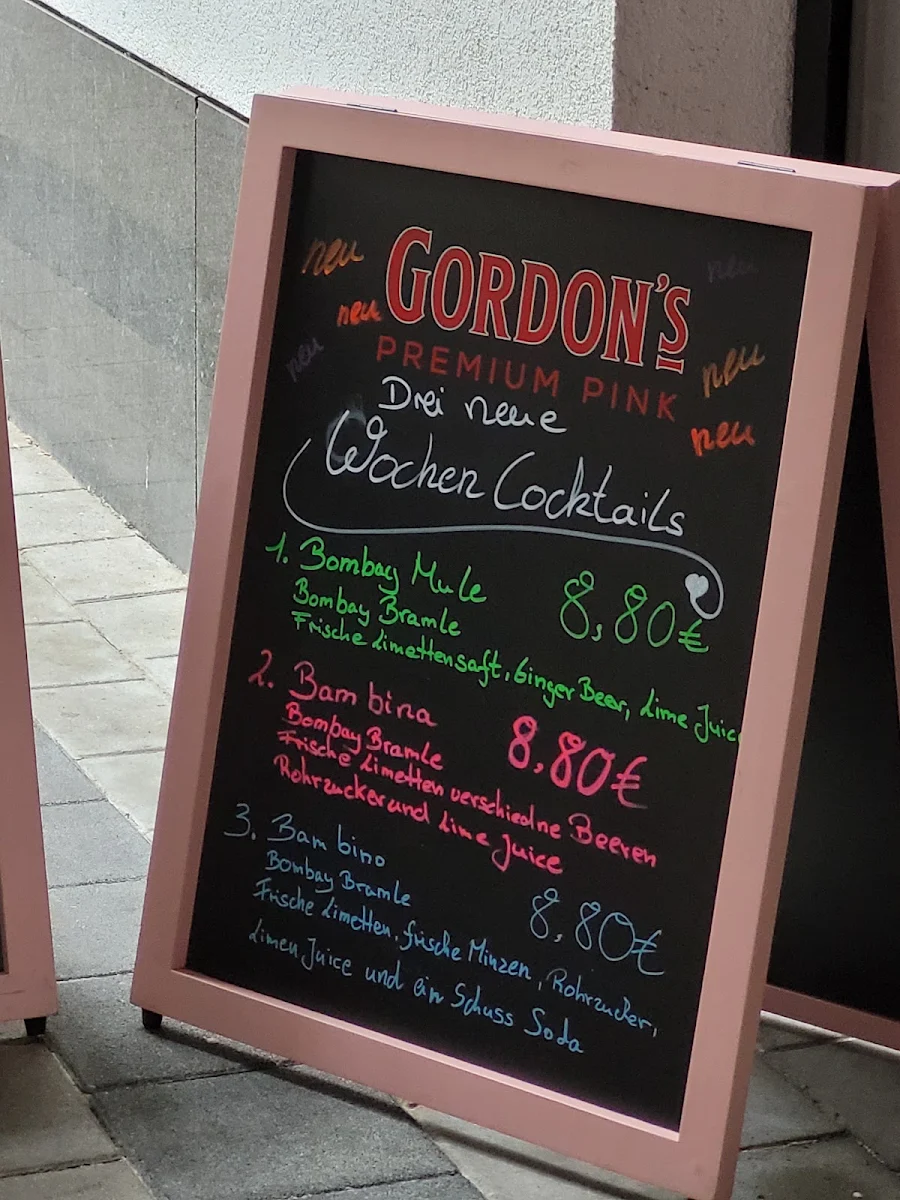 neu
neu
neu
GORDON'S
PREMIUM PINK
neu
neu
neu
Drei neue
Wochen Cocktails
1. Bombay Mule 8,80€
Bombay Bramle
Frische Limettensaft, Ginger Beer, Lime Juice
2. Bambina 8,80€
Bombay Bramle
Frische Limetten verschiedne Beeren
Rohrzucker und Lime Juice
3. Bambino 8,80€
Bombay Bramle
Frische Limetten, frische Minzen, Rohrzucker,
Limen Juice und ein Schuss Soda